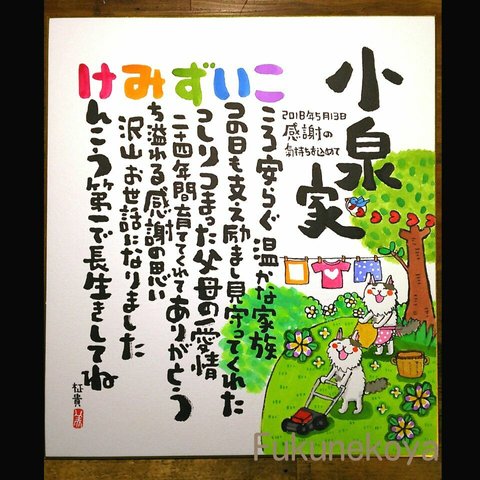 小泉家
2018年5月13日
感謝の
気持ちを込めて
こころ安らぐ 温かな家族
いつの日も支え励まし見守ってくれた
ずっしりつまった父母の愛情
二十四年間育ててくれてありがとう
みち溢れる感謝の思い
沢山お世話になりました
けんこう第一で長生きしてね
征貴
Fukunekoya